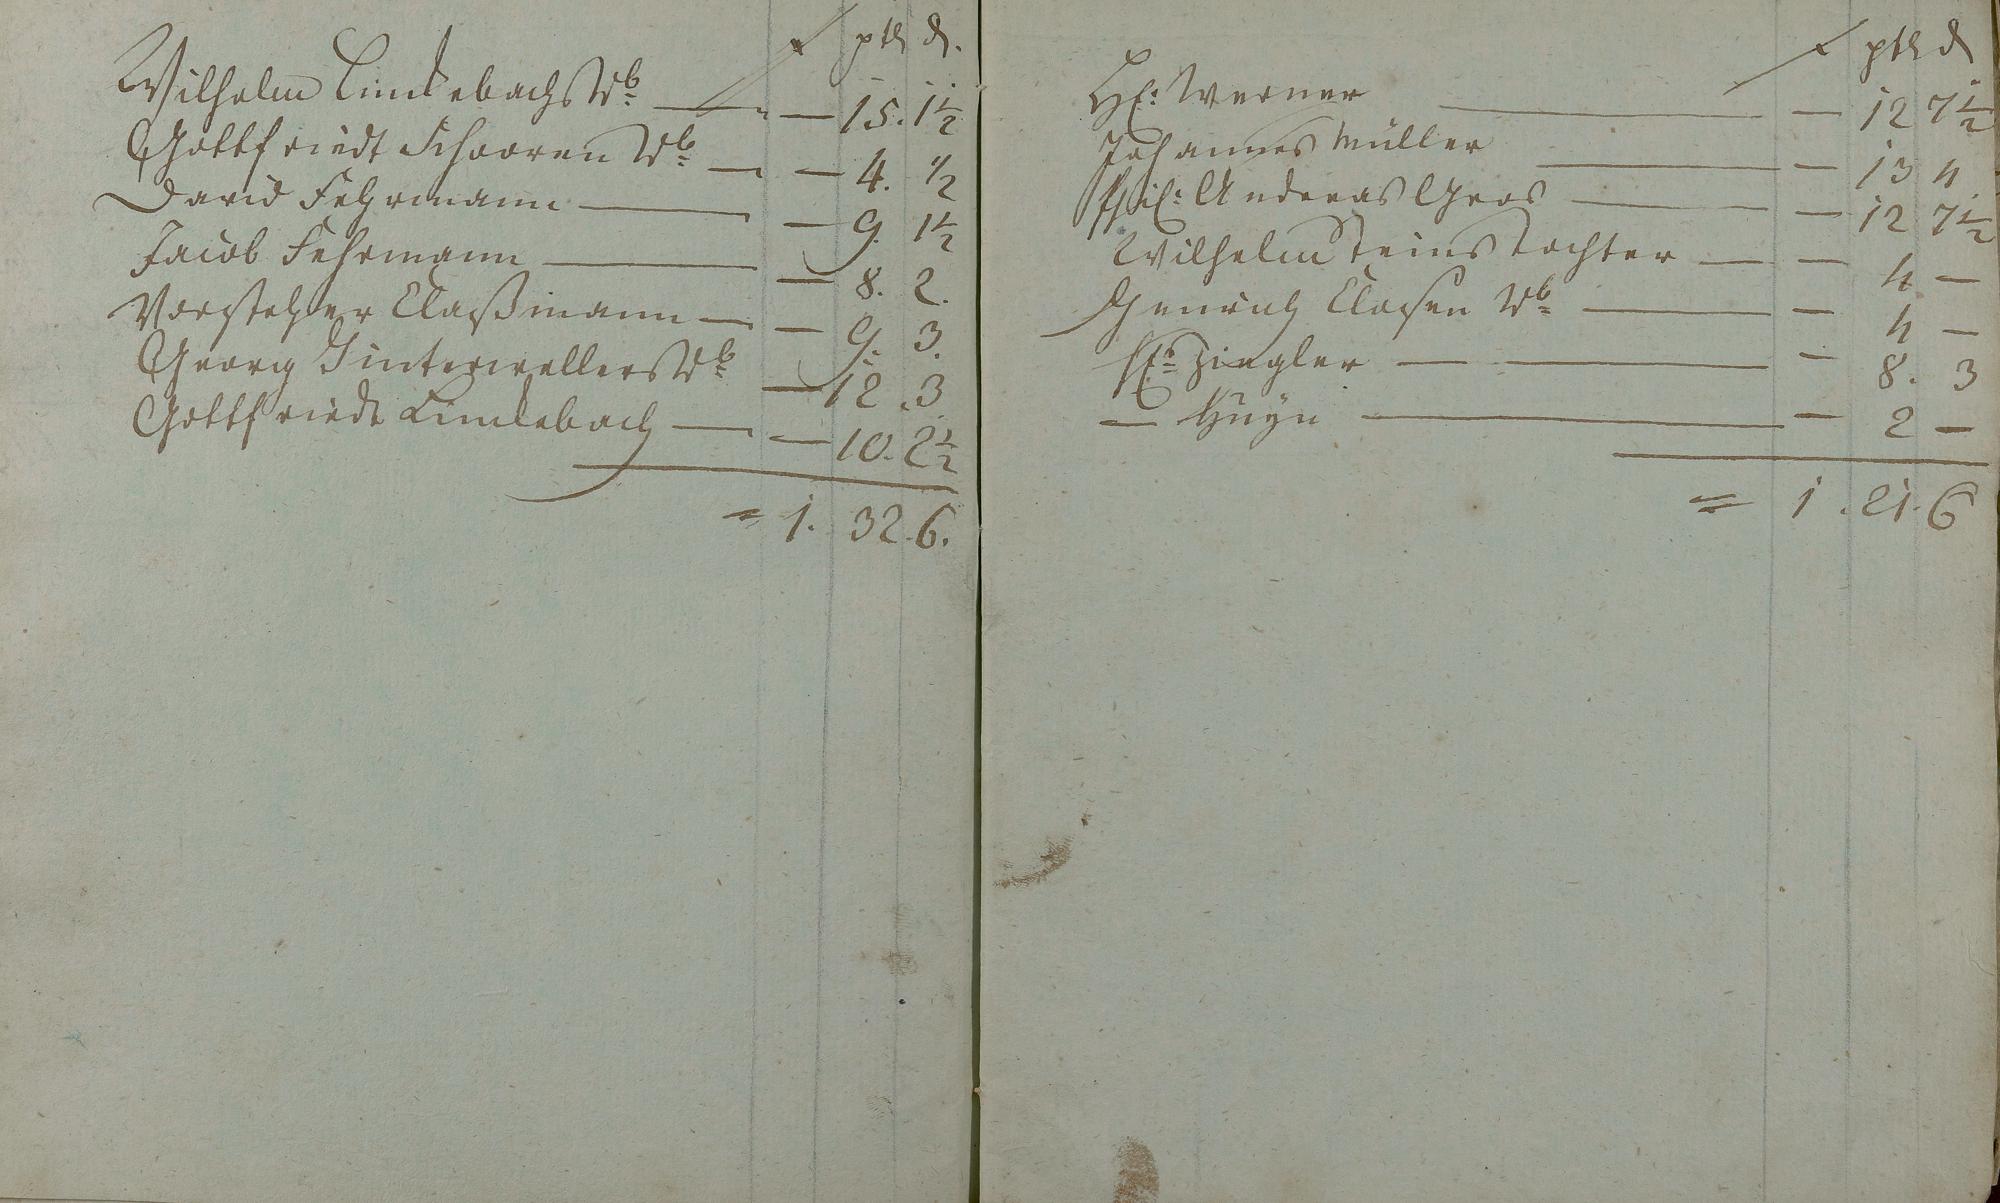 ptt ₰.
Wilhelm Lindebachs Wb — — 15. 1½
Gottfriedt Schooren Wb — — 4. ½
David Fehrmann — — 9. 1½
Jacob Fehrmann — — 8. 2.
Vorsteher Claßmann — — 9. 3.
Georg Hinterwellers Wb — 12. 3.
Gottfriedt Lindebach — — 10. 2½
= 1. 32. 6.
ptt ₰
H: Werner — — 12 7½
Johannes Müller — — 13 4
Phil: Anderas Gros — — 12 7½
Wilhelm Steins Tochter — — 4 —
Henrich Clasen Wb — — 4 —
H: Ziegler — — — 8. 3
— Huÿn — — 2 —
= 1. 21. 6